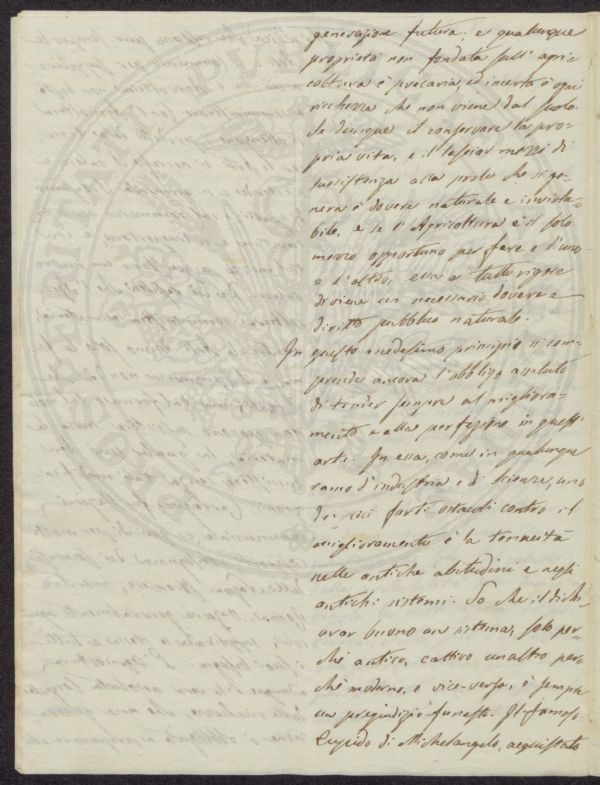 generazione futura: e qualunque
proprietà non fondata sull' agri
coltura è precaria, ed incerta è ogni
ricchezza che non viene dal suolo.
Se dunque il conservare la pro-
pria vita, e il lasciar mezzi di
sussistenza alla prole che si ge-
nera è dovere naturale e inviola-
bile, e se l'Agricoltura è il solo
mezzo opportuno per fare e l'uno
e l'altro, essa a tutto rigore
diviene un necessario dovere e
diritto pubblico naturale.
In questo medesimo principio si com-
prende ancora l'obbligo assoluto
di tender sempre al migliora-
mento e alla perfezione in quest'
arte. In essa, come in qualunque
ramo d'industria e di scienze, uno
dei più forti ostacoli contro il
miglioramento è la tenacità
nelle antiche abitudini e negli
antichi sistemi. So che il dichi
arar buono un sistema, solo per-
chè antico, cattivo un altro per-
chè moderno, e vice-versa, è sempre
un pregiudizio funesto. Il famoso
Cupido di Michelangelo, acquistato